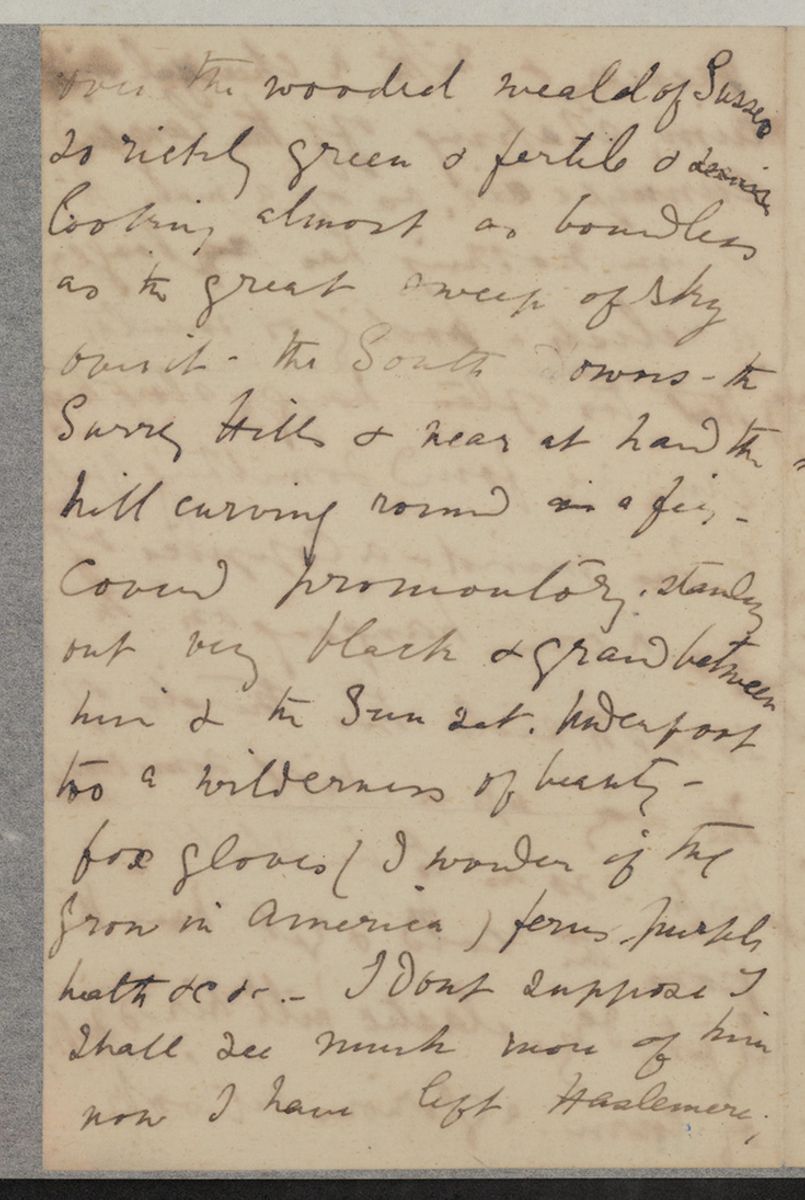 over the wooded weald of Sussex
so richly green & fertile &
looking almost as boundless
as the great sweep of sky
over it - the South Downs - the
Surrey Hills & near at hand the
hill curving round in a fir -
covered promontory, standing
out very black & grand between
him & the Sun set. Underfoot
too a wilderness of beauty -
fox gloves ( I wonder if they
grow in America ) ferns purple
heath &c &c. - I dont suppose I
shall see much more of him
now I have left Haslemere,